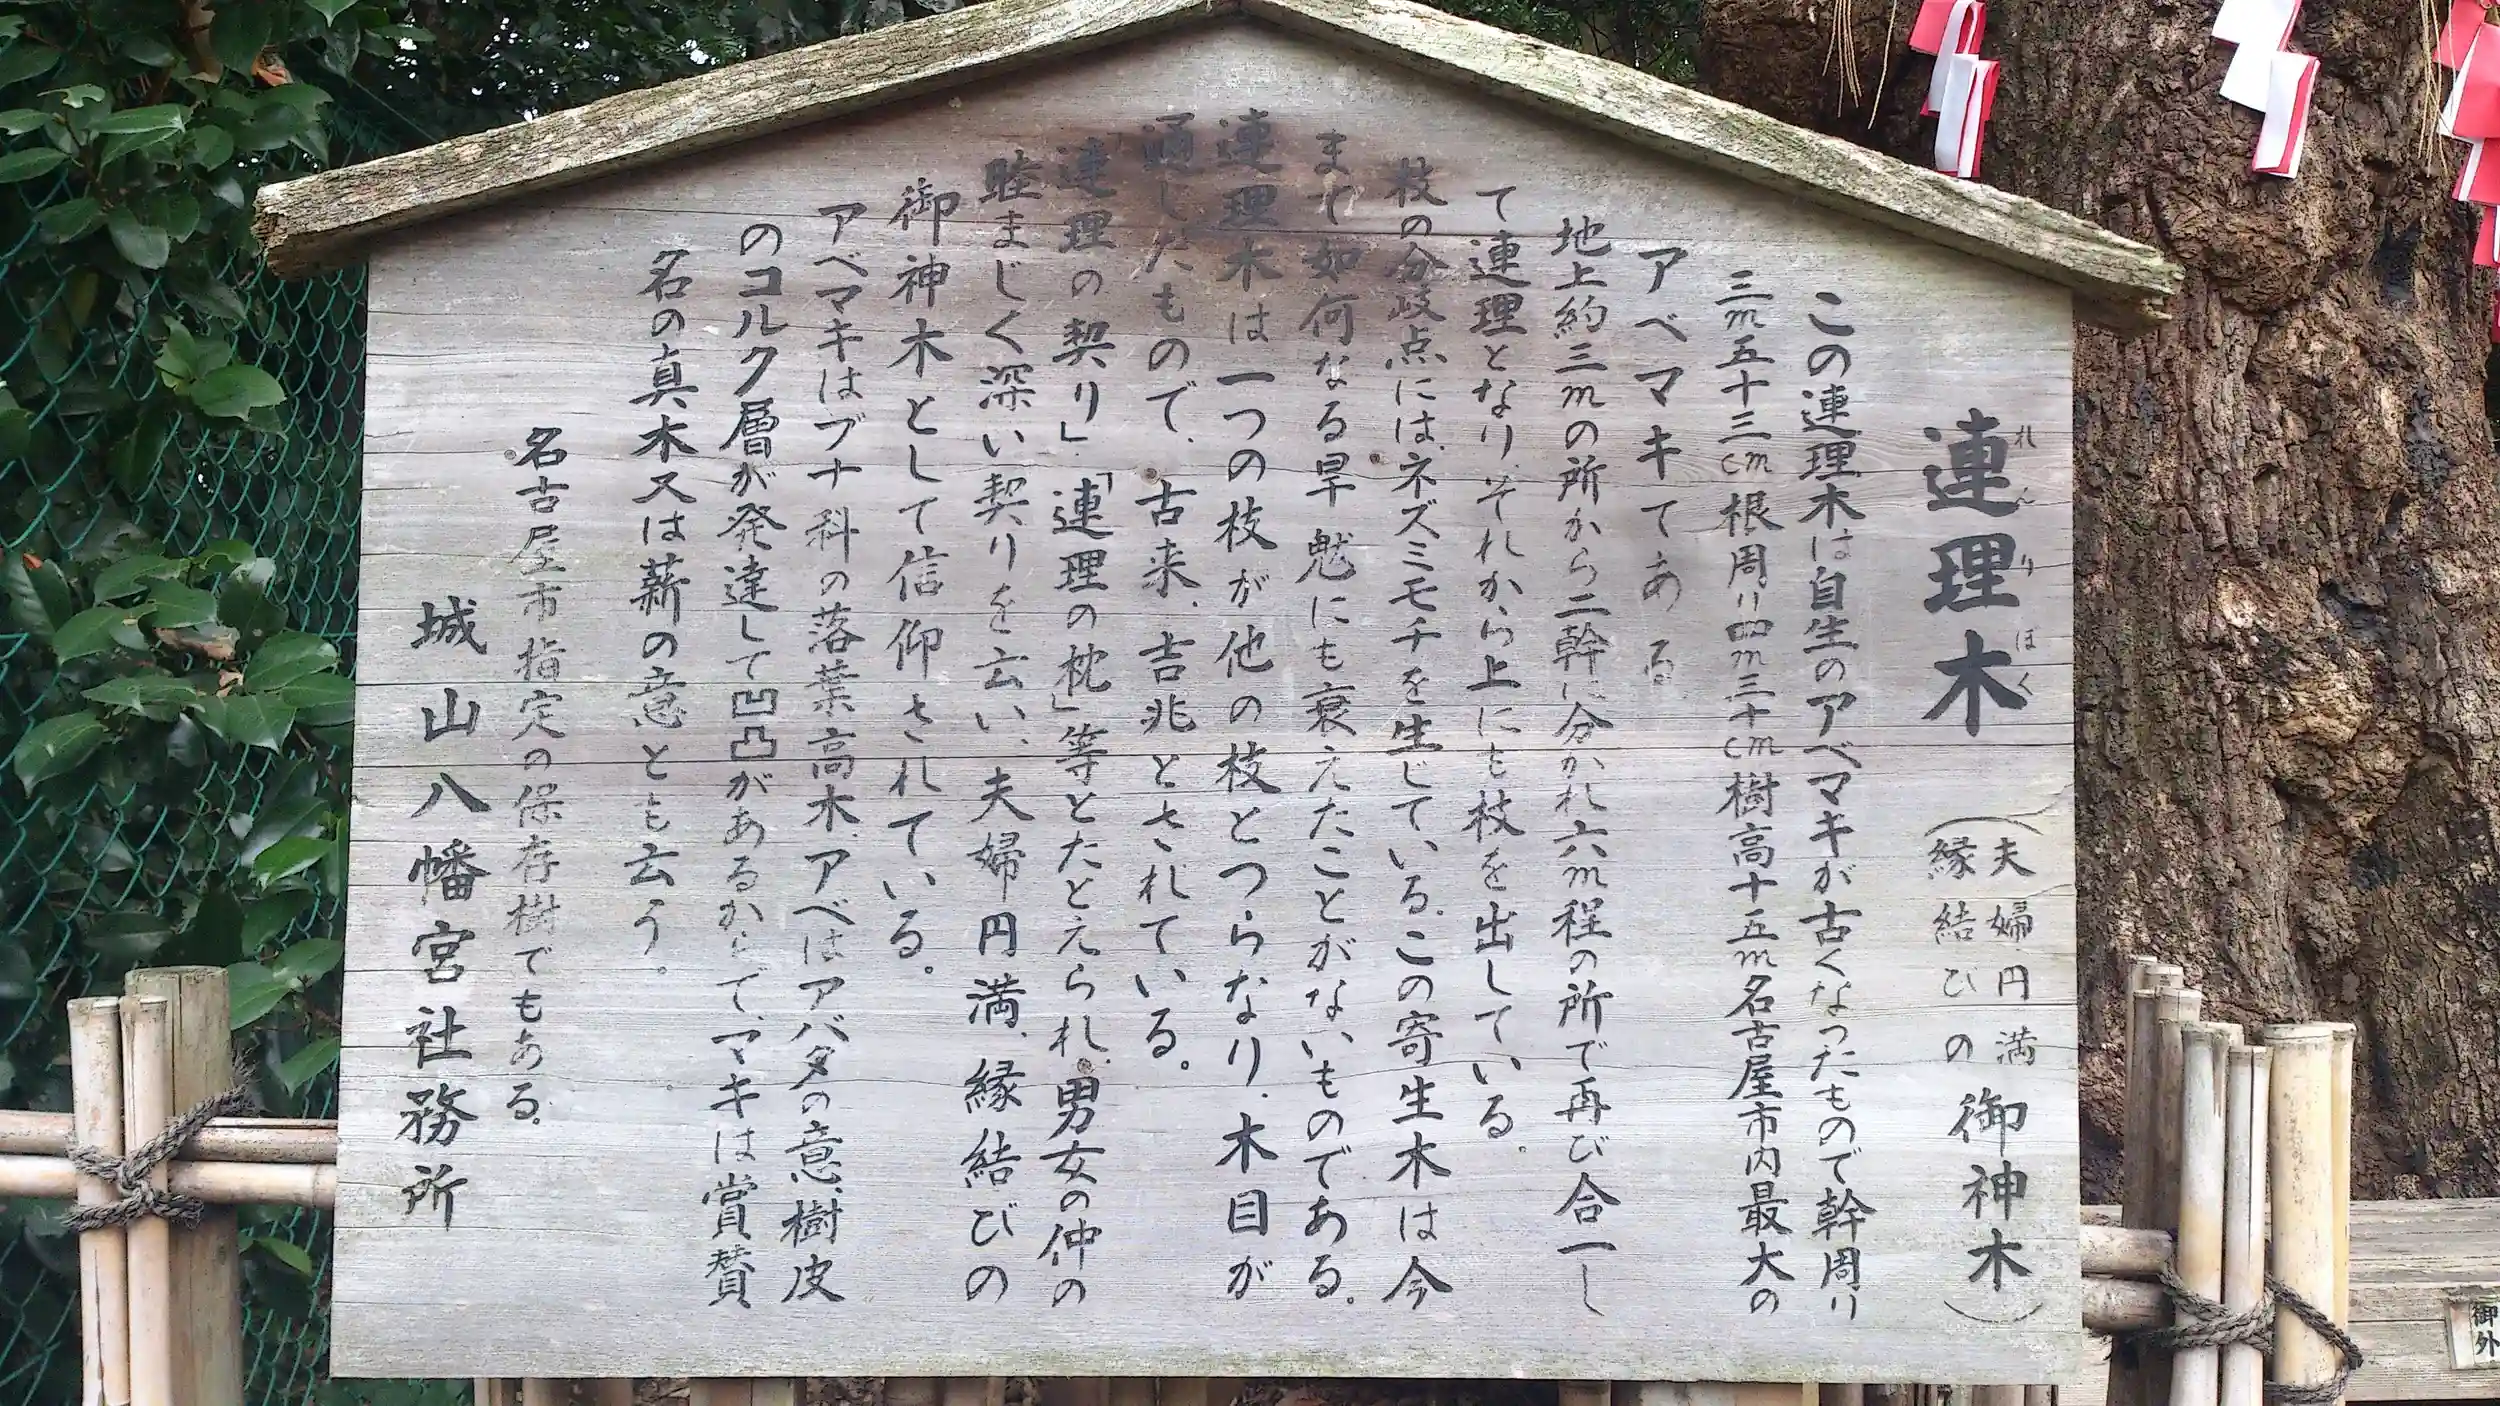 連理木（夫婦円満 縁結びの 御神木）
れんりぼく
この連理木は自生のアベマキが古くなったもので幹周り
三m五十三cm根周り四m三十cm樹高十五m名古屋市内最大の
アベマキてある
地上約三mの所から二幹に分かれ六m程の所で再び合一し
て連理となり、それから上にも枝を出している。
枝の分岐点には、ネズミモチを生じている、この寄生木は今
まで如何なる旱魃にも衰えたことがないものである。
連理木は一つの枝が他の枝とつらなり、木目が
通したもので、古来、吉兆とされている。
「連理の契り」、「連理の枕」等とたとえられ、男女の仲の
睦まじく深い契りを云い、夫婦円満、縁結びの
御神木として信仰されている。
アベマキはブナ科の落葉高木、アベはアバタの意、樹皮
のコルク層が発達して凹凸があるからで、マキは賞賛
名の真木又は薪の意とも云う。
名古屋市指定の保存樹でもある。
城山八幡宮社務所
御
外